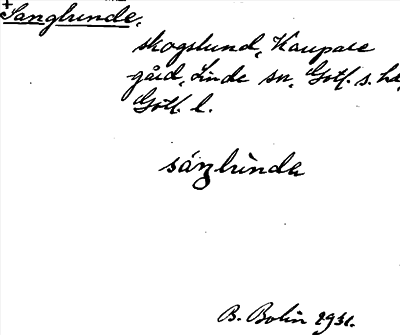 +
Sanglunde,
skogslund, Kaupare
gård, Linde sn, Gotl. s. hd,
Gotl. l.
sáŋlùndα
B. Bolin 1931.